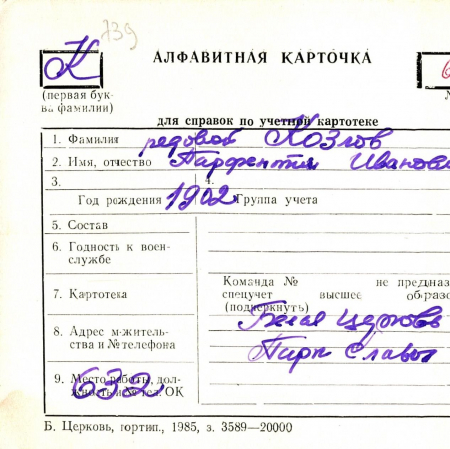 739
К
АЛФАВИТНАЯ КАРТОЧКА
(первая бук-
ва фамилии)
для справок по учетной картотеке
1. Фамилия редовой Козлов
2. Имя, отчество Парфентий Иванови
3.
4.
Год рождения 1902 Группа учета
5. Состав
6. Годность к воен-
службе
7. Картотека
Команда № не предназ
спецучет высшее образо
(подчеркнуть)
8. Адрес м-житель-
ства и № телефона
Белая Церковь
Парк Славы
9. Место работы, дол-
жность и № тел. ОК
632
Б. Церковь, юртип., 1985, з. 3589—20000